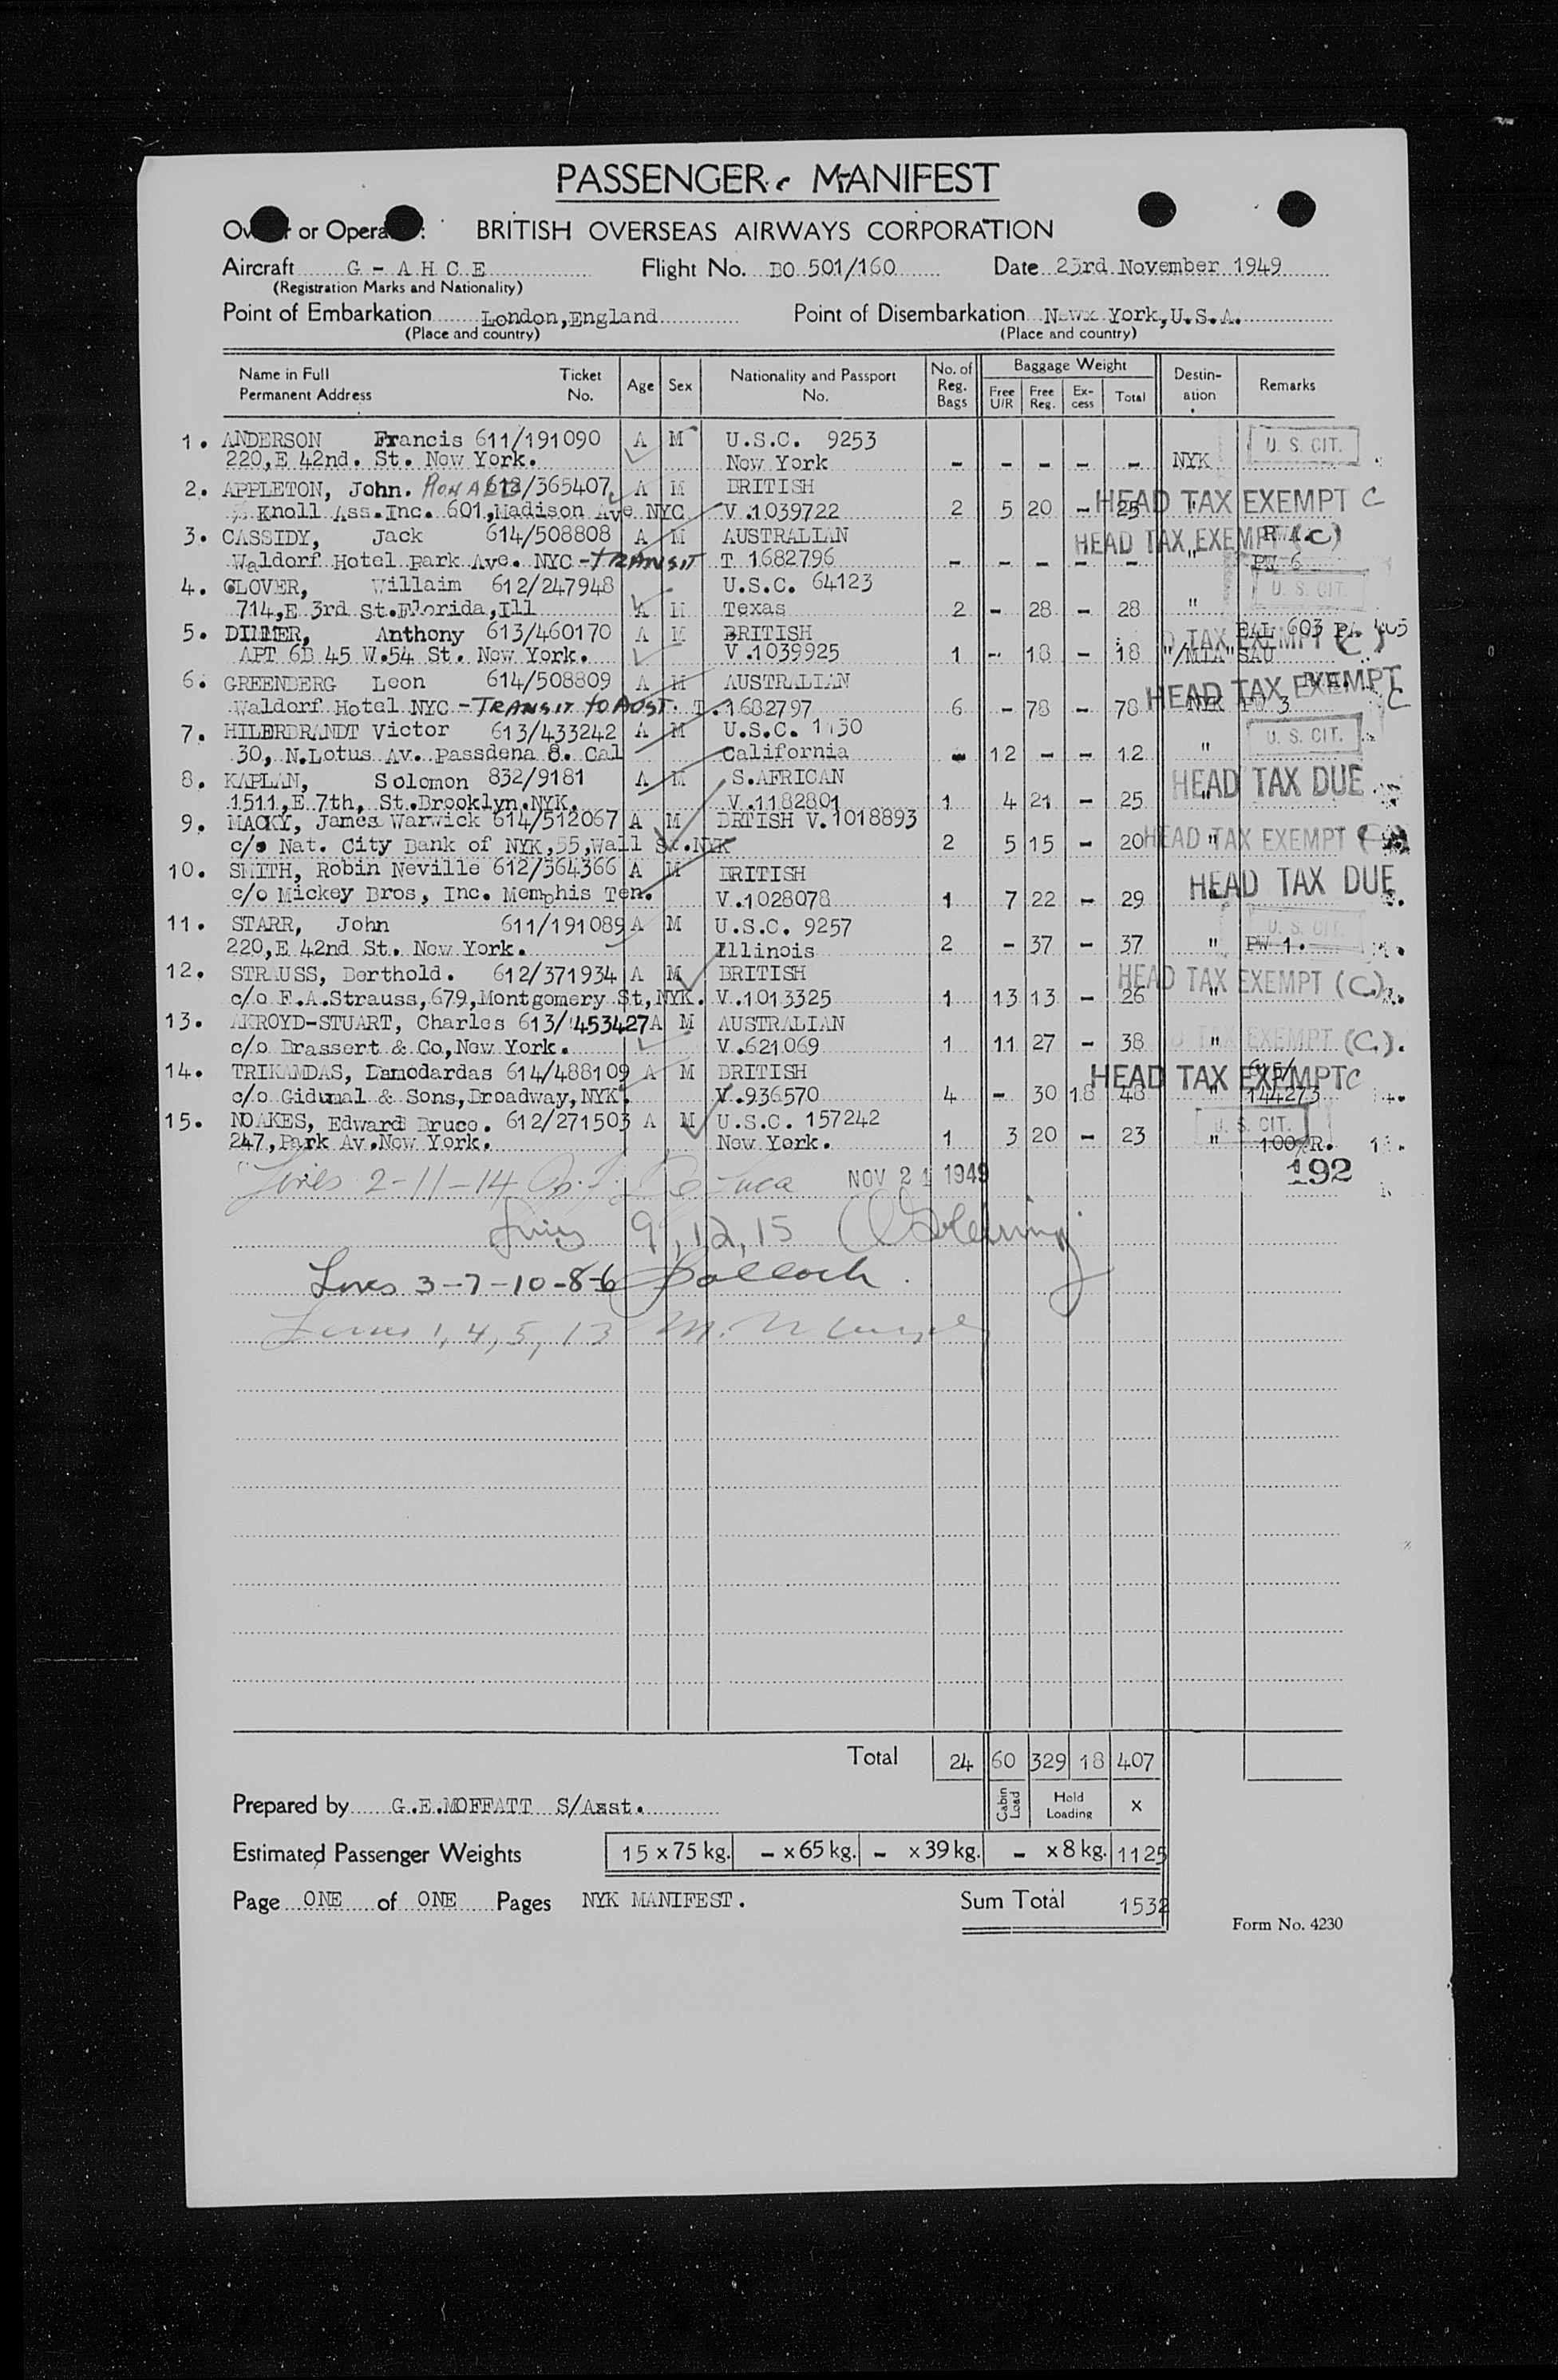 PASSENGER MANIFEST
Owner or Operator: BRITISH OVERSEAS AIRWAYS CORPORATION
Aircraft G - A H C E Flight No. BO 501/160 Date 23rd November 1949
(Registration Marks and Nationality)
Point of Embarkation London,England Point of Disembarkation New York,U.S.A.
(Place and country) (Place and country)
Name in Full Permanent Address Ticket No. Age Sex Nationality and Passport No. No. of Reg. Bags Baggage Weight Free U/R Free Reg. Ex-cess Total Destin-ation Remarks
1. ANDERSON Francis 611/191090 A M U.S.C. 9253 U. S. CIT.
220,E 42nd. St. New York. New York - - - - - NYK
2. APPLETON, John. RONALD 612/365407 A M BRITISH HEAD TAX EXEMPT C
Knoll Ass.Inc. 601,Madison Ave NYC V.1039722 2 5 20 - 25 "
3. CASSIDY, Jack 614/508808 A M AUSTRALIAN HEAD TAX EXEMPT (C)
Waldorf Hotel Park Ave. NYC - TRANSIT T 1682796 - - - - - " PW 6
4. GLOVER, Willaim 612/247948 U.S.C. 64123 U. S. CIT.
714,E 3rd St.Florida,Ill A M Texas 2 - 28 - 28 "
5. DIMMER, Anthony 613/460170 A M BRITISH TAX EXEMPT (C)
APT 6B 45 W.54 St. New York. V.1039925 1 - 18 - 18 "/MIA"
6. GREENBERG Leon 614/508809 A M AUSTRALIAN HEAD TAX EXEMPT C
Waldorf Hotel NYC - TRANSIT to AUST. T.1682797 6 - 78 - 78 NYK 3
7. HILERDRANDT Victor 613/433242 A M U.S.C. 1130 U. S. CIT.
30, N.Lotus Av. Passdena 8. Cal California - 12 - - 12 "
8. KAPLAN, Solomon 832/9181 A M S.AFRICAN HEAD TAX DUE
1511,E.7th, St.Brooklyn.NYK. V.1182801 1 4 21 - 25 "
9. MACKY, James Warwick 614/512067 A M BRITISH V.1018893
c/o Nat. City Bank of NYK,55,Wall St.NYK 2 5 15 - 20 " HEAD TAX EXEMPT
10. SMITH, Robin Neville 612/364366 A M BRITISH HEAD TAX DUE
c/o Mickey Bros, Inc. Memphis Ten. V.1028078 1 7 22 - 29
11. STARR, John 611/191089 A M U.S.C. 9257 U. S. CIT.
220,E 42nd St. New York. Illinois 2 - 37 - 37 " PW 1.
12. STRAUSS, Berthold. 612/371934 A M BRITISH HEAD TAX EXEMPT (C)
c/o F.A.Strauss,679,Montgomery St,NYK. V.1013325 1 13 13 - 26 "
13. AKROYD-STUART, Charles 613/453427 A M AUSTRALIAN
c/o Brassert & Co,New York. V.621069 1 11 27 - 38 " TAX EXEMPT (C).
14. TRIKAMDAS, Damodardas 614/488109 A M BRITISH HEAD TAX EXEMPT C
c/o Gidumal & Sons,Broadway,NYK. V.936570 4 - 30 18 48 " 144273
15. NOAKES, Edward Bruce. 612/271503 A M U.S.C. 157242 U. S. CIT.
247,Park Av.New York. New York. 1 3 20 - 23 " 100%R.
Lines 2-11-14 NOV 21 1949 192
Lines 9,12,15
Lines 3-7-10-8-6
Lines 1,4,5,13
Total 24 60 329 18 407
Prepared by G.E.MOFFATT S/Asst. Cabin Load Hold Loading x
Estimated Passenger Weights 15 x 75 kg. - x 65 kg. - x 39 kg. - x 8 kg. 1125
Page ONE of ONE Pages NYK MANIFEST. Sum Total 1532
Form No. 4230